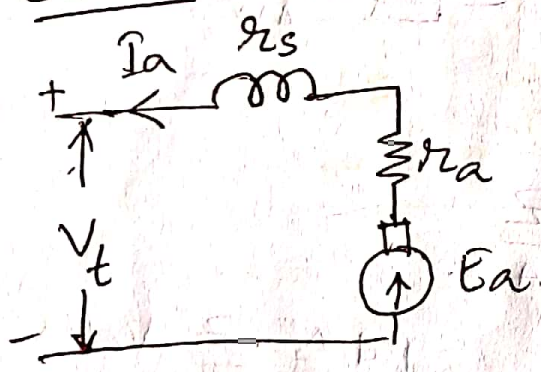 Ia
rs
+
ra
Vt
Ea
-